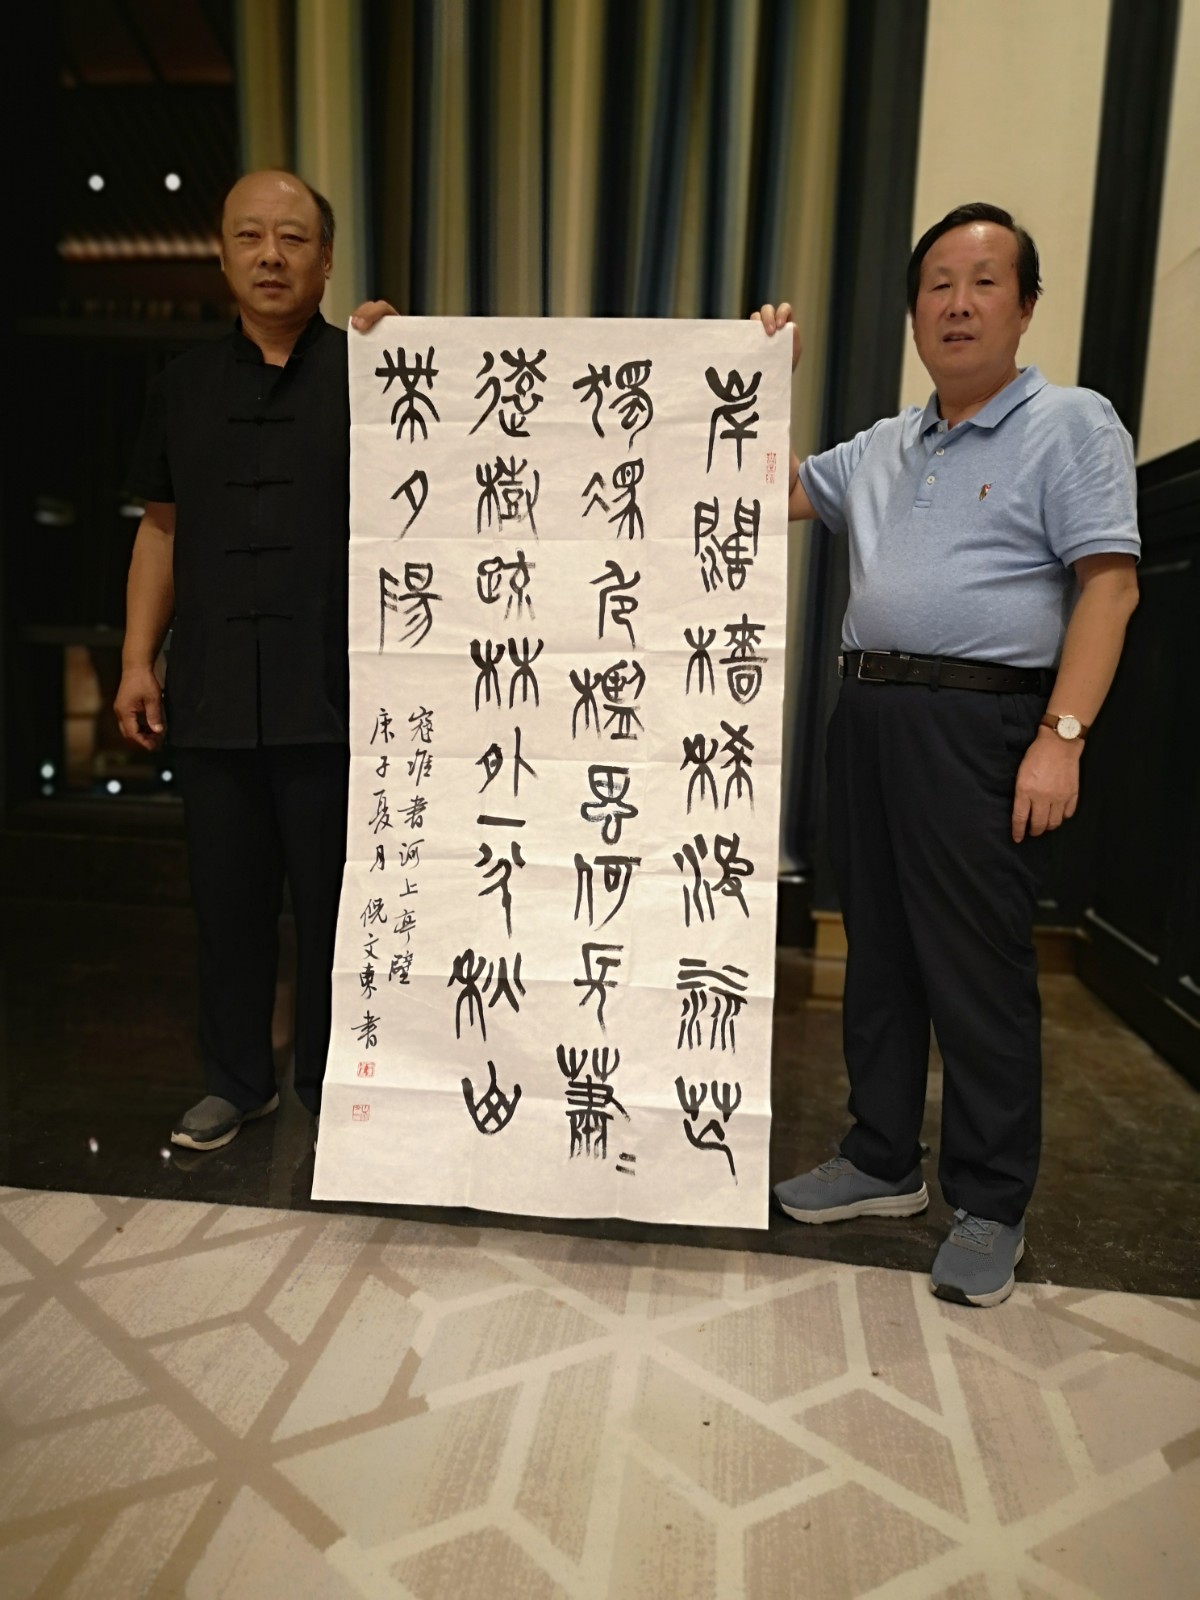 岸闊檣稀波渺茫
獨憑危檻思何長蕭〻
遠樹疏林外一半秋山
帶夕陽
寇准書河上亭壁
庚子夏月倪文東書